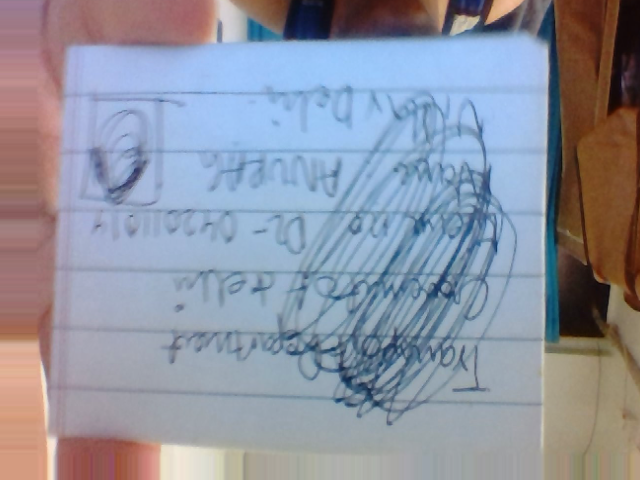 Transport Department
Government of delhi
Licence no DL-042011014
Name ANURAG
Delhi